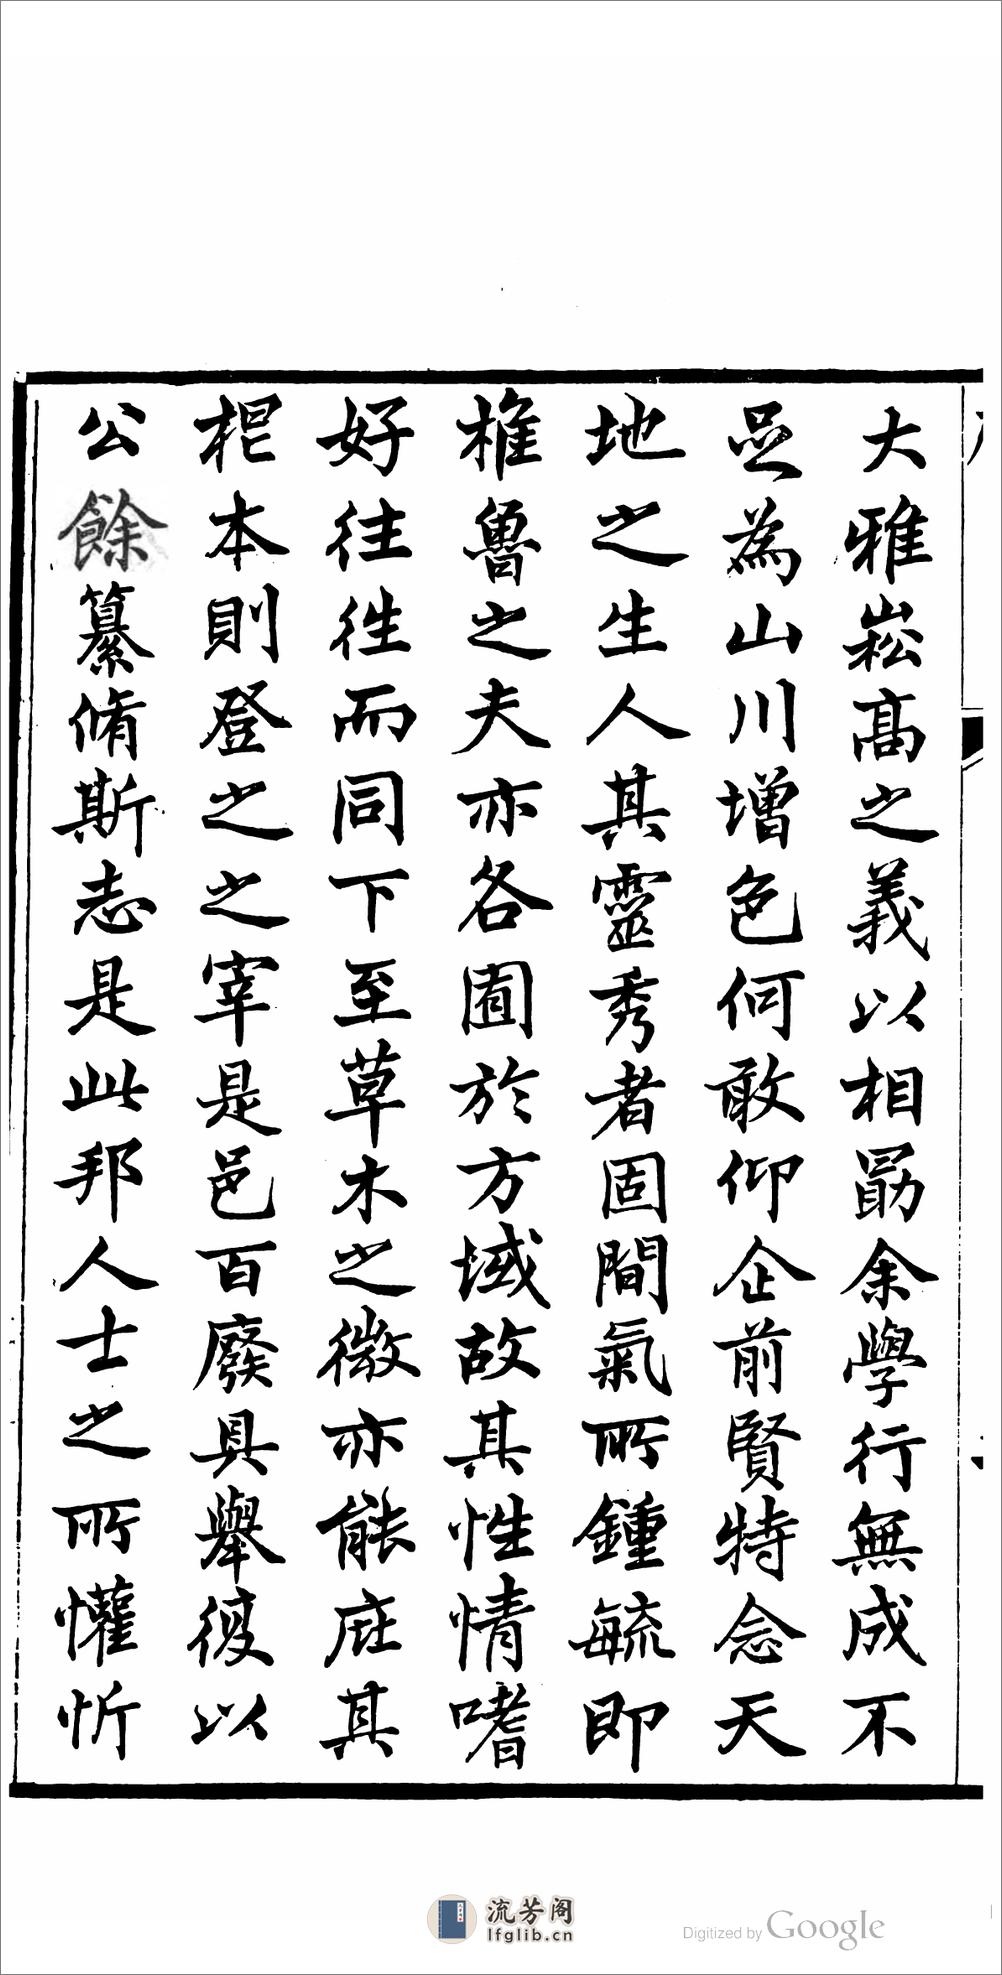 大雅崧高之義以相勗余學行無成不
足為山川增色何敢仰企前賢特念天
地之生人其靈秀者固間氣所鍾毓即
椎魯之夫亦各囿於方域故其性情嗜
好往往而同下至草木之微亦能庇其
根本則登之之宰是邑百廢具舉復以
公餘纂脩斯志是此邦人士之所懽忻
流芳阁
lfglib.cn
Digitized by Google